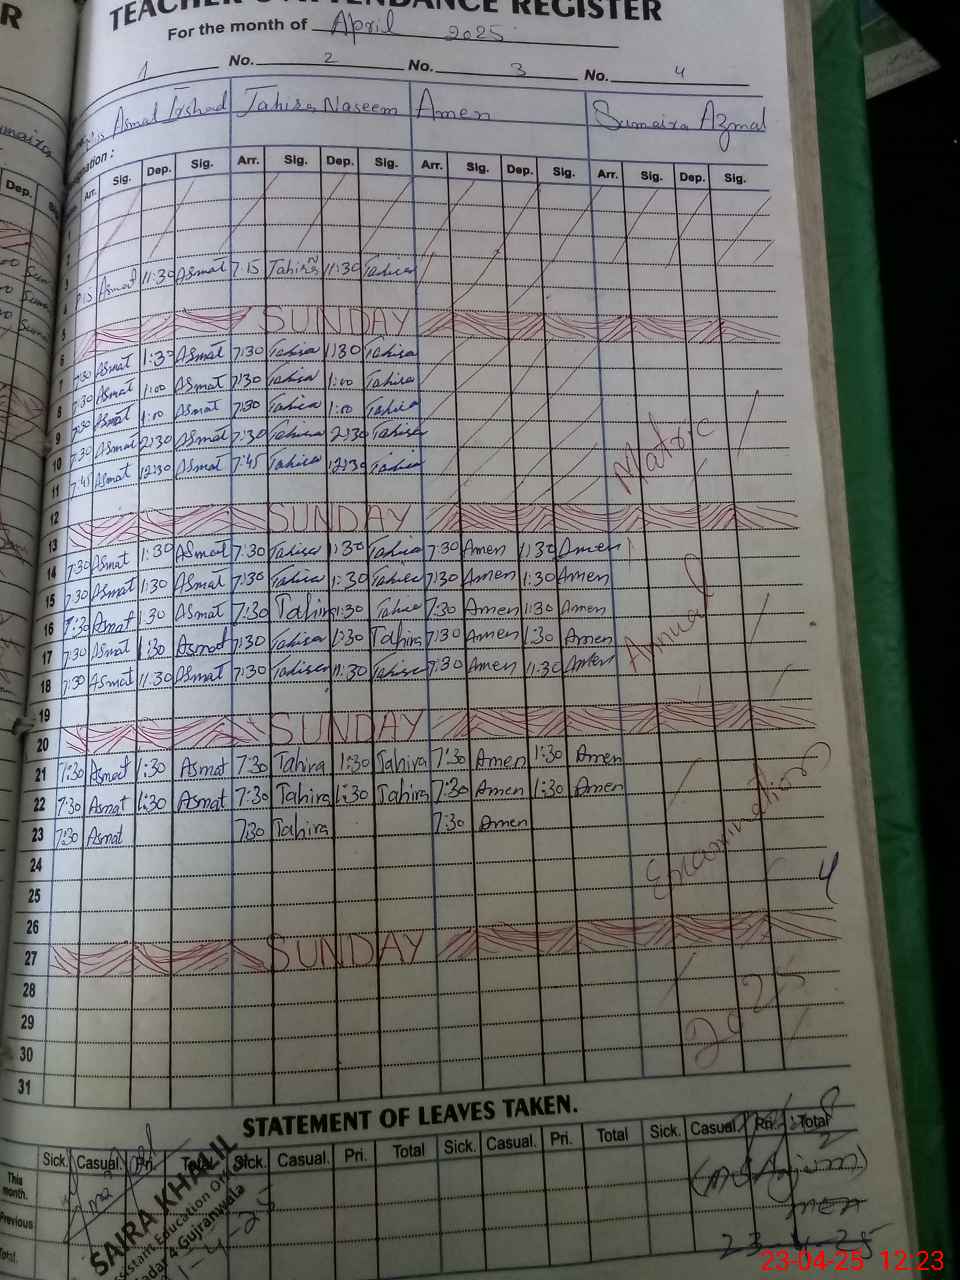 TEACHER'S ATTENDANCE REGISTER
For the month of April 2025
1 No. 2 No. 3 No. 4
Asmat Irshad Tahira Naseem Amen Sumaira Azmat
Arr. Sig. Dep. Sig. Arr. Sig. Dep. Sig. Arr. Sig. Dep. Sig. Arr. Sig. Dep. Sig.
4 Asmat 11:30 Asmat 7:15 Tahira 11:30 Tahira
5 SUNDAY
6 7:30 Asmat 1:30 Asmat 7:30 Tahira 1:30 Tahira
7 7:30 Asmat 1:00 Asmat 7:30 Tahira 1:00 Tahira
8 7:30 Asmat 1:00 Asmat 7:30 Tahira 1:00 Tahira
9 7:30 Asmat 2:30 Asmat 7:30 Tahira 2:30 Tahira
10 7:45 Asmat 12:30 Asmat 7:45 Tahira 12:30 Tahira Matric
11
12 SUNDAY
13 7:30 Asmat 1:30 Asmat 7:30 Tahira 1:30 Tahira 7:30 Amen 1:30 Amen
14 7:30 Asmat 1:30 Asmat 7:30 Tahira 1:30 Tahira 7:30 Amen 1:30 Amen
15 7:30 Asmat 1:30 Asmat 7:30 Tahira 1:30 Tahira 7:30 Amen 1:30 Amen
16 7:30 Asmat 1:30 Asmat 7:30 Tahira 1:30 Tahira 7:30 Amen 1:30 Amen Annual
17 7:30 Asmat 11:30 Asmat 7:30 Tahira 11:30 Tahira 7:30 Amen 11:30 Amen
18
19 SUNDAY
20
21 7:30 Asmat 1:30 Asmat 7:30 Tahira 1:30 Tahira 7:30 Amen 1:30 Amen
22 7:30 Asmat 1:30 Asmat 7:30 Tahira 1:30 Tahira 7:30 Amen 1:30 Amen
23 7:30 Asmat 7:30 Tahira 7:30 Amen
24 Examination
25 4
26
27 SUNDAY
28
29 2025
30
31
STATEMENT OF LEAVES TAKEN.
Sick. Casual. Pri. Total Sick. Casual. Pri. Total Sick. Casual. Pri. Total Sick. Casual. Pri. Total
This month.
Previous
Total.
SAIRA KHALIL
Assistant Education Officer
Gujranwala
MEA
23-4-25
23-04-25 12:23